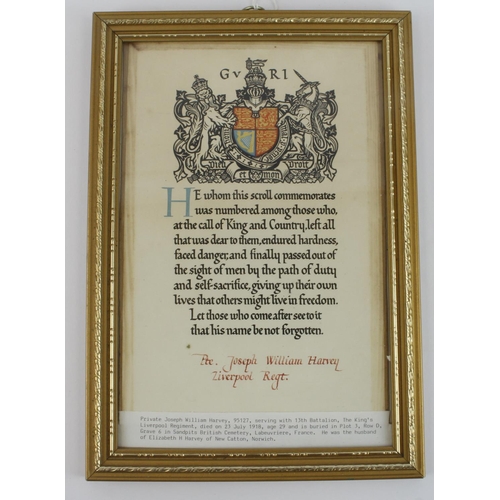 GV RI
Dieu et mon droit
HE whom this scroll commemorates
was numbered among those who,
at the call of King and Country, left all
that was dear to them, endured hardness,
faced danger, and finally passed out of
the sight of men by the path of duty
and self-sacrifice, giving up their own
lives that others might live in freedom.
Let those who come after see to it
that his name be not forgotten.
Pte. Joseph William Harvey
Liverpool Regt.
Private Joseph William Harvey, 95127, serving with 13th Battalion, The King's
Liverpool Regiment, died on 23 July 1918, age 29 and is buried in Plot 3, Row D,
Grave 6 in Sandpits British Cemetery, Labeuvriere, France. He was the husband
of Elizabeth H Harvey of New Catton, Norwich.